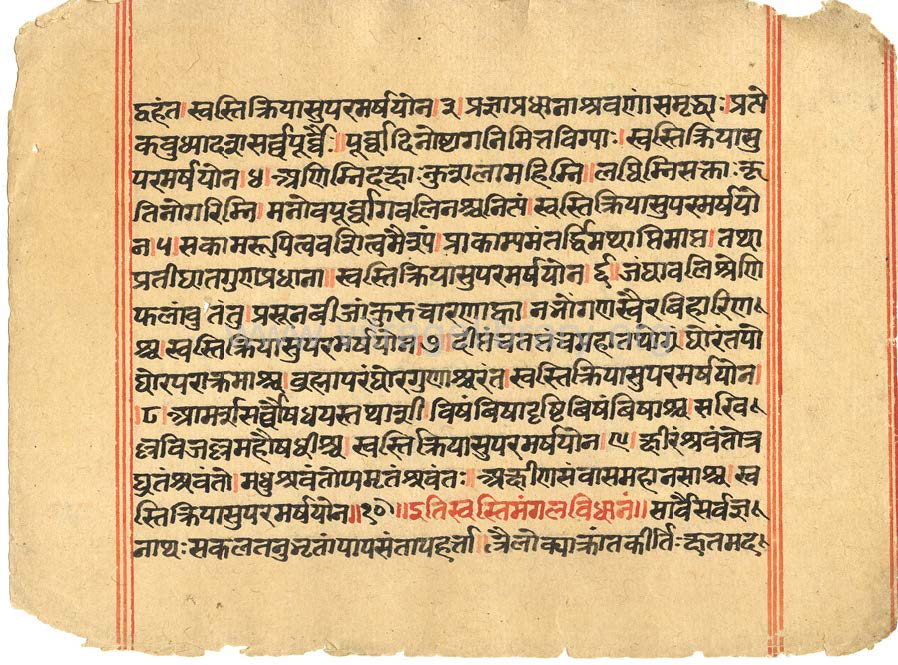 द्वहंत। स्वस्तिक्रियासुपरमर्षयोन ३। प्रज्ञाप्रधानाश्रवणांसमृद्धाः। प्रत्ये
कबुधादशसर्व्वपूर्व्वैः॥ पूर्व्वादिनोष्टागनिमित्तविग्पाः। स्वस्तिक्रियासु
परमर्षयोन। ४। अणिम्निदक्षाः कुशलामहिम्नि॥ लघिम्निसक्ताः कृ
तिनोगरिम्नि। मनोवपूर्व्वाग्वलिनश्चनित्यं। स्वस्तिक्रियासुपरमर्षयो
न। ५। सकामरूपित्ववशित्वमैश्यं। प्राकाम्पमंतर्द्धिमथाप्तिमाप्त। तथा
प्रतीघातगुणप्रधाना॥ स्वस्तिक्रियासुपरमर्षयोन। ६॥ जंघावलिश्रेणि
फलांबु तंतु। प्रसूनबीजांकुरुचारणाह्वा। नभोगणस्वैरविहारिण
श्च। स्वस्तिक्रियासुपरमर्षयोन। ७। दीप्तंचतप्तंचमहातथोग्रं घोरंतपो
घोरपराक्रमाश्च। ब्रह्मापरंघोरगुणाश्चरंत। स्वस्तिक्रियासुपरमर्षयोन।
। ८। आमर्शसर्व्वौषधयस्तथाशी। विषंबिषादृष्टिबिषंबिषाश्च। सखि
ल्लविजल्लमहौषधीश्च। स्वस्तिक्रियासुपरमर्षयोन। ९। क्षीरंश्रवंतोत्र
घ्रतंश्रवंतो। मधुश्रवंतोप्पमृतंश्रवंतः। अक्षीणसंवासमहानसाश्च। स्व
स्तिक्रियासुपरमर्षयोन॥१०॥ ॥इतिस्वस्तिमंगलविधानं॥ सार्वैसर्वज्ञ
नाथः सकलतनुभृतांपापसंतापहर्त्ता। त्रैलोक्याक्रांतकीर्तिः क्षतमद